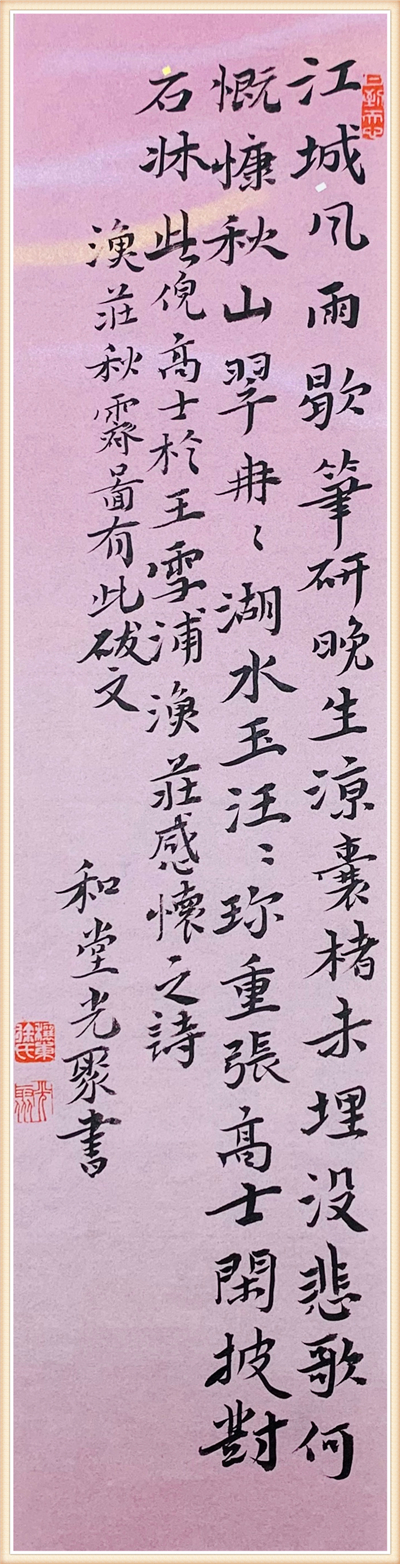 江城风雨歇筆研晚生涼囊楮未埋没悲歌何
慨慷秋山翠冉〻湖水玉汪〻珎重張髙士閑披對
石牀此倪髙士於王雪浦漁荘感懷之詩
漁荘秋霽啚有此跋文
和堂光聚書